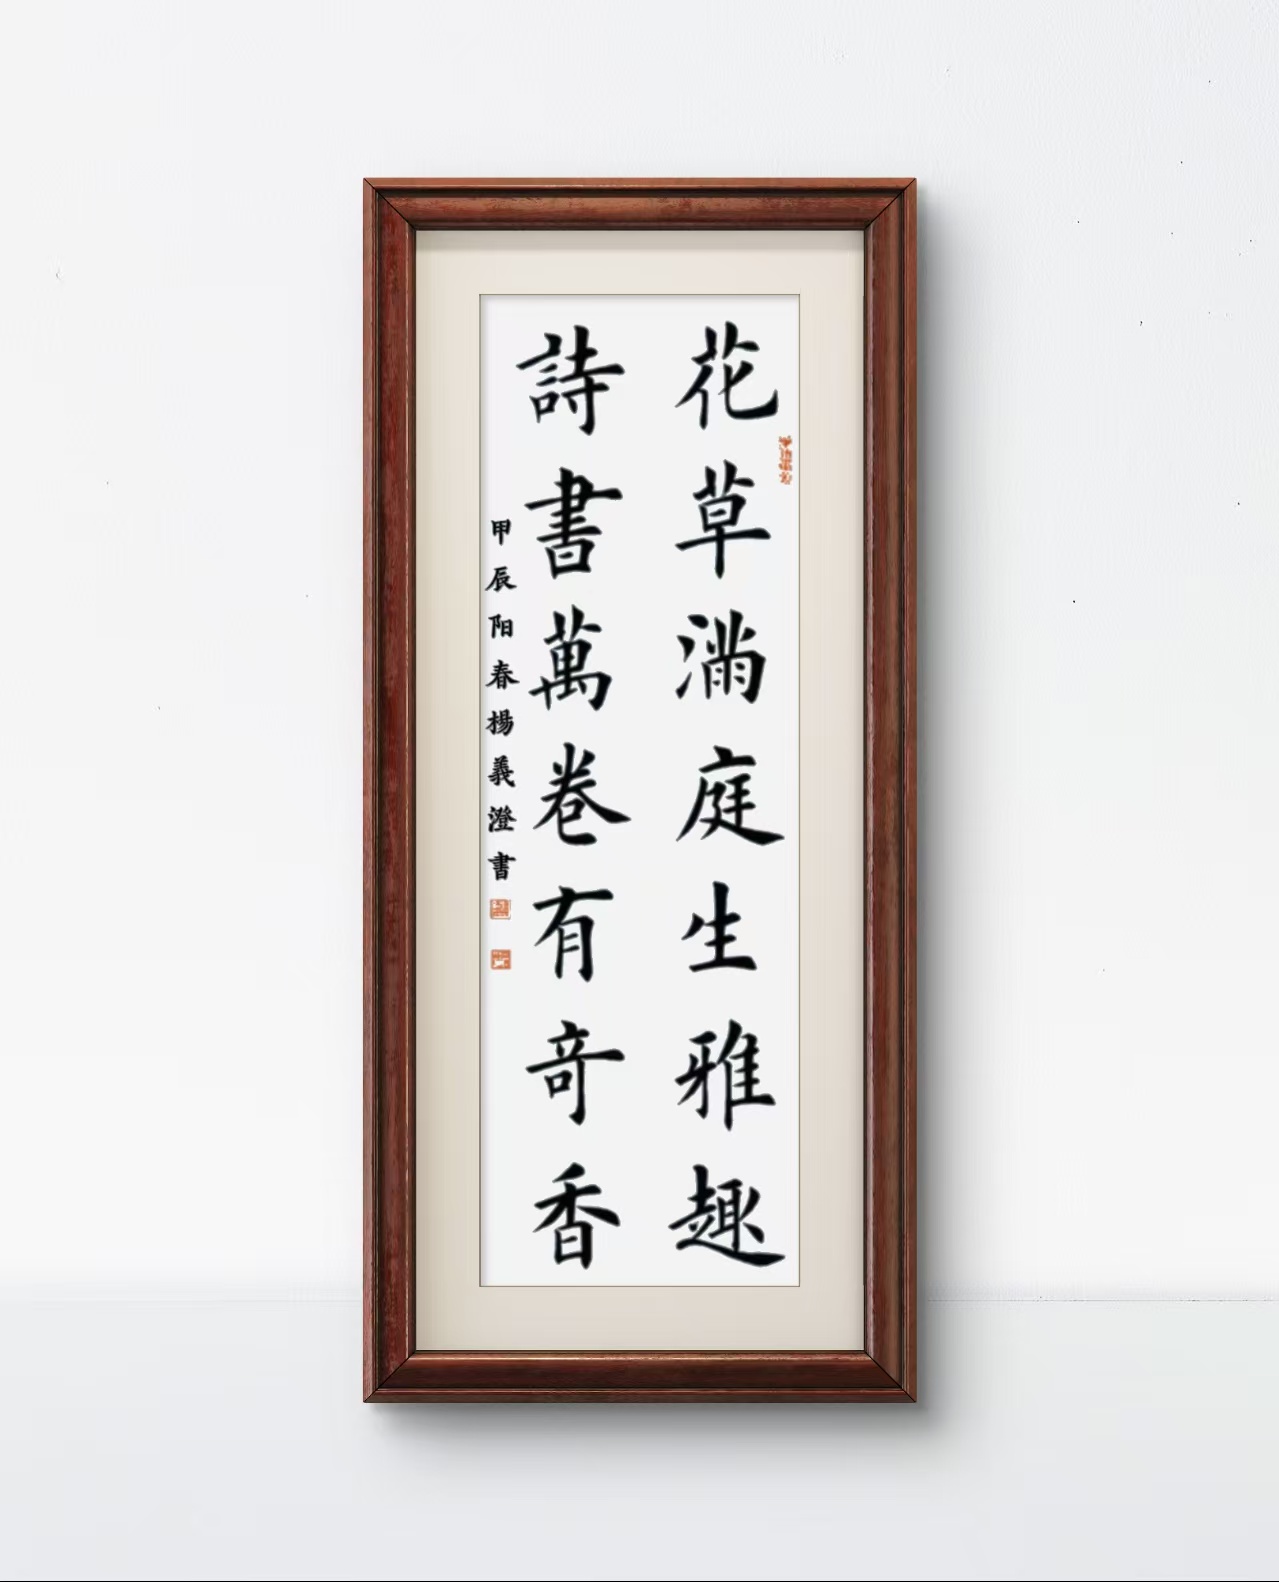 花草滿庭生雅趣
詩書萬卷有奇香
甲辰阳春楊義澄書